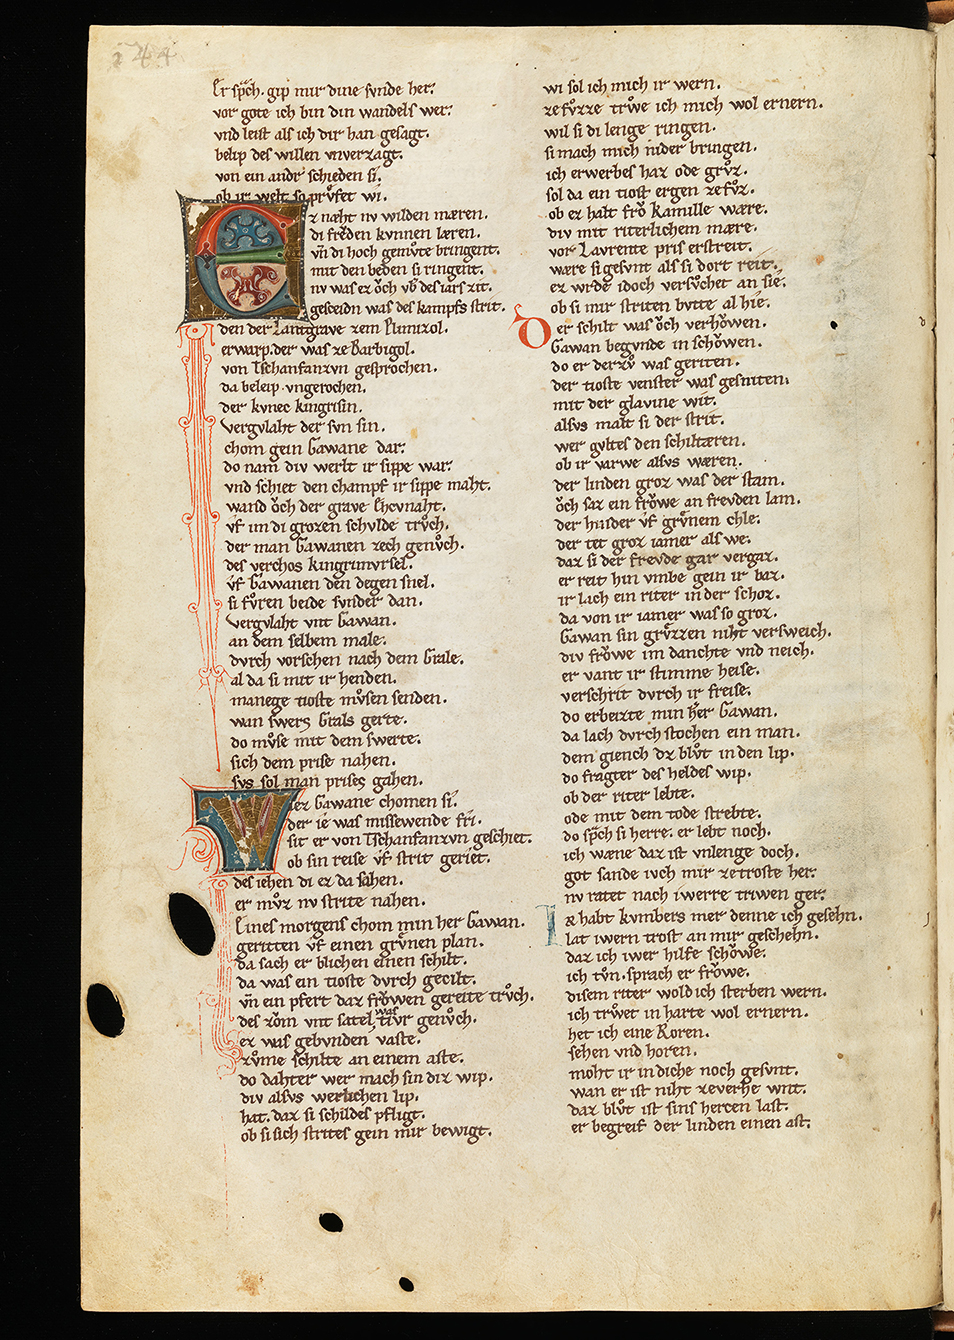 144
Er sp̄ch. gip mir dine svnde her.
vor gote ich bin din wandels wer.
vnd leist als ich dir han gesagt.
belip des willen vnverzagt.
von ein andr̄ schieden si.
ob ir welt so prv̊fet wi.
Ez næht nv wilden mæren.
di frev̊den kvnnen læren.
vn̄ di hoch gemv̊te bringent.
mit den beden si ringent.
nv was ez o̊ch vb̄ des iars zit.
gesceidn was des kampfs strit.
den der Lantgrave zem Plimizol.
erwarp. der was ze Barbigol.
von Tschanfanzvn gesprochen.
da beleip vngerochen.
der kvnec kingrisin.
vergvlaht der svn sin.
chom gein Gawane dar.
do nam div werlt ir sippe war.
vnd schiet den champf ir sippe maht.
wand o̊ch der grave Ehcvnaht.
v̊f im di grozen schvlde trv̊ch.
der man Gawanen zech genv̊ch.
des verchos kingrimvrsel.
v̊f Gawanen den degen snel.
si fv̊ren beide svnder dan.
vergvlaht vnt Gawan.
an dem selbem male.
dvrch vorschen nach dem Grale.
al da si mit ir henden.
manege tioste mv̊sen senden.
wan swers Grals gerte.
do mv̊se mit dem swerte.
sich dem prise nahen.
svs sol man prises gahen.
Wiez Gawane chomen si.
der ie was missewende fri.
sit er von Tschanfanzvn geschiet.
ob sin reise v̊f strit geriet.
des iehen di ez da sahen.
er mv̊z nv strite nahen.
Eines morgens chom min her Gawan.
geritten v̊f einen grv̊nen plan.
da sach er blichen einen schilt.
da was ein tioste dvrch gecilt.
vn̄ ein pfert daz fro̊wen gereite trv̊ch.
des zo̊m vnt satel was tivr genv̊ch.
ez was gebvnden vaste.
zv̊me schilte an einem aste.
do dahter wer mach sin diz wip.
div alsvs werlichen lip.
hat. daz si schildes pfligt.
ob si sich strites gein mir bewigt.
wi sol ich mich ir wern.
ze fv̊zze trv̊we ich mich wol ernern.
wil si di lenge ringen.
si mach mich nider bringen.
ich erwerbes haz ode grv̊z.
sol da ein tiost ergen ze fv̊z.
ob ez halt fro̊ kamille wære.
div mit riterlichem mære.
vor Lavrente pris erstreit.
wære si gesvnt als si dort reit.
ez wrde idoch versv̊chet an sie.
ob si mir striten bvtte al hie.
Der schilt was o̊ch verho̊wen.
Gawan begvnde in scho̊wen.
do er der zv̊ was geriten.
der tioste venster was gesniten.
mit der glavine wit.
alsvs malt si der strit.
wer gvltes den schiltæren.
ob ir varwe alsvs wæren.
der linden groz was der stam.
o̊ch saz ein fro̊we an frevden lam.
der hinder v̊f grv̊nem chle.
der tet groz iamer als we.
daz si der frevde gar vergaz.
er reit hin vmbe gein ir baz.
ir lach ein riter in der schoz.
da von ir iamer was so groz.
Gawan sin grv̊zzen niht versweich.
div fro̊we im danchte vnd neich.
er vant ir stimme heise.
verschrit dvrch ir freise.
do erbeizte min her Gawan.
da lach dvrch stochen ein man.
dem giench dz blv̊t in den lip.
do fragter des heldes wip.
ob der riter lebte.
ode mit dem tode strebte.
do sp̄ch si herre. er lebt noch.
ich wæne daz ist vnlenge doch.
got sande ivch mir ze troste her.
nv ratet nach iwerre triwen ger.
Ir habt kvmbers mer denne ich gesehn.
lat iwern trost an mir geschehn.
daz ich iwer hilfe scho̊we.
ich tv̊n. sprach er fro̊we.
disem riter wold ich sterben wern.
ich trv̊wet in harte wol ernern.
het ich eine Roren.
sehen vnd horen.
moht ir in diche noch gesvnt.
wan er ist niht ze verhe wnt.
daz blv̊t ist sins hercen last.
er begreif der linden einen ast.